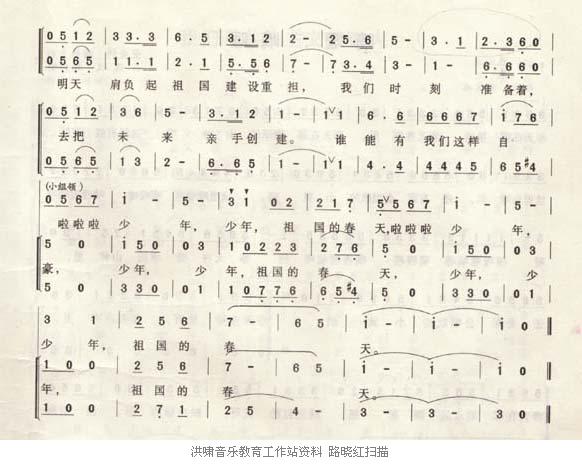 0 5 1 2 | 3 3. 3 | 6. 5 | 3. 1 2 | 1 2 | 2 - | 2 5. 6 | 5 - | 3. 1 | 2. 3 6 0
0 5 6 5 | 1 1. 1 | 3. 1 | 2. 1 | 5. 5 6 | 7 - | 7 3. 4 | 3 - | 1 - | 6. 6 6 0
明天 肩负起 祖国 建设重担， 我们 时 刻 准备着，
0 5 1 2 | 3 6 | 5 - | 3. 1 2 | 1 - | 1 1 | 6. 6 | 6 6 6 7 | i 7 6
去把 未 来 亲手创 建。 谁能 有 我们这样 自
0 5 6 5 | 1 3 | 2 - | 6. 6 5 | 1 - | 1 1 | 4. 4 | 4 4 4 5 | 6 5 #4
(小组领)
0 5 6 7 | i - | 5 - | 3 1 | 0 2 | 2 1 7 | 5 5 6 7 | i - | 5 -
啦啦啦 少 年， 少年， 祖 国的春 天，啦啦啦 少 年，
5 0 | i 5 0 | 0 3 | 1 0 2 2 3 | 2 7 6 | 5 0 | i 5 0 | 0 3
豪， 少年， 少 年，祖国的 春 天， 少年， 少
5 0 | 3 3 0 | 0 1 | 1 0 7 7 6 | 6 5 #4 | 5 0 | 3 3 0 | 0 1
3 1 | 2 5 6 | 7 - | 6 5 | i - | i - | i 0
少 年， 祖国的 春 天。
1 0 0 | 2 5 6 | 7 - | 6 5 | i - | i - | i 0 0
年， 祖国的 春 天。
1 0 0 | 2 7 1 | 2 5 | 4 5 4 | 3 - | 3 - | 3 0 0
洪啸音乐教育工作站资料 路晓红扫描